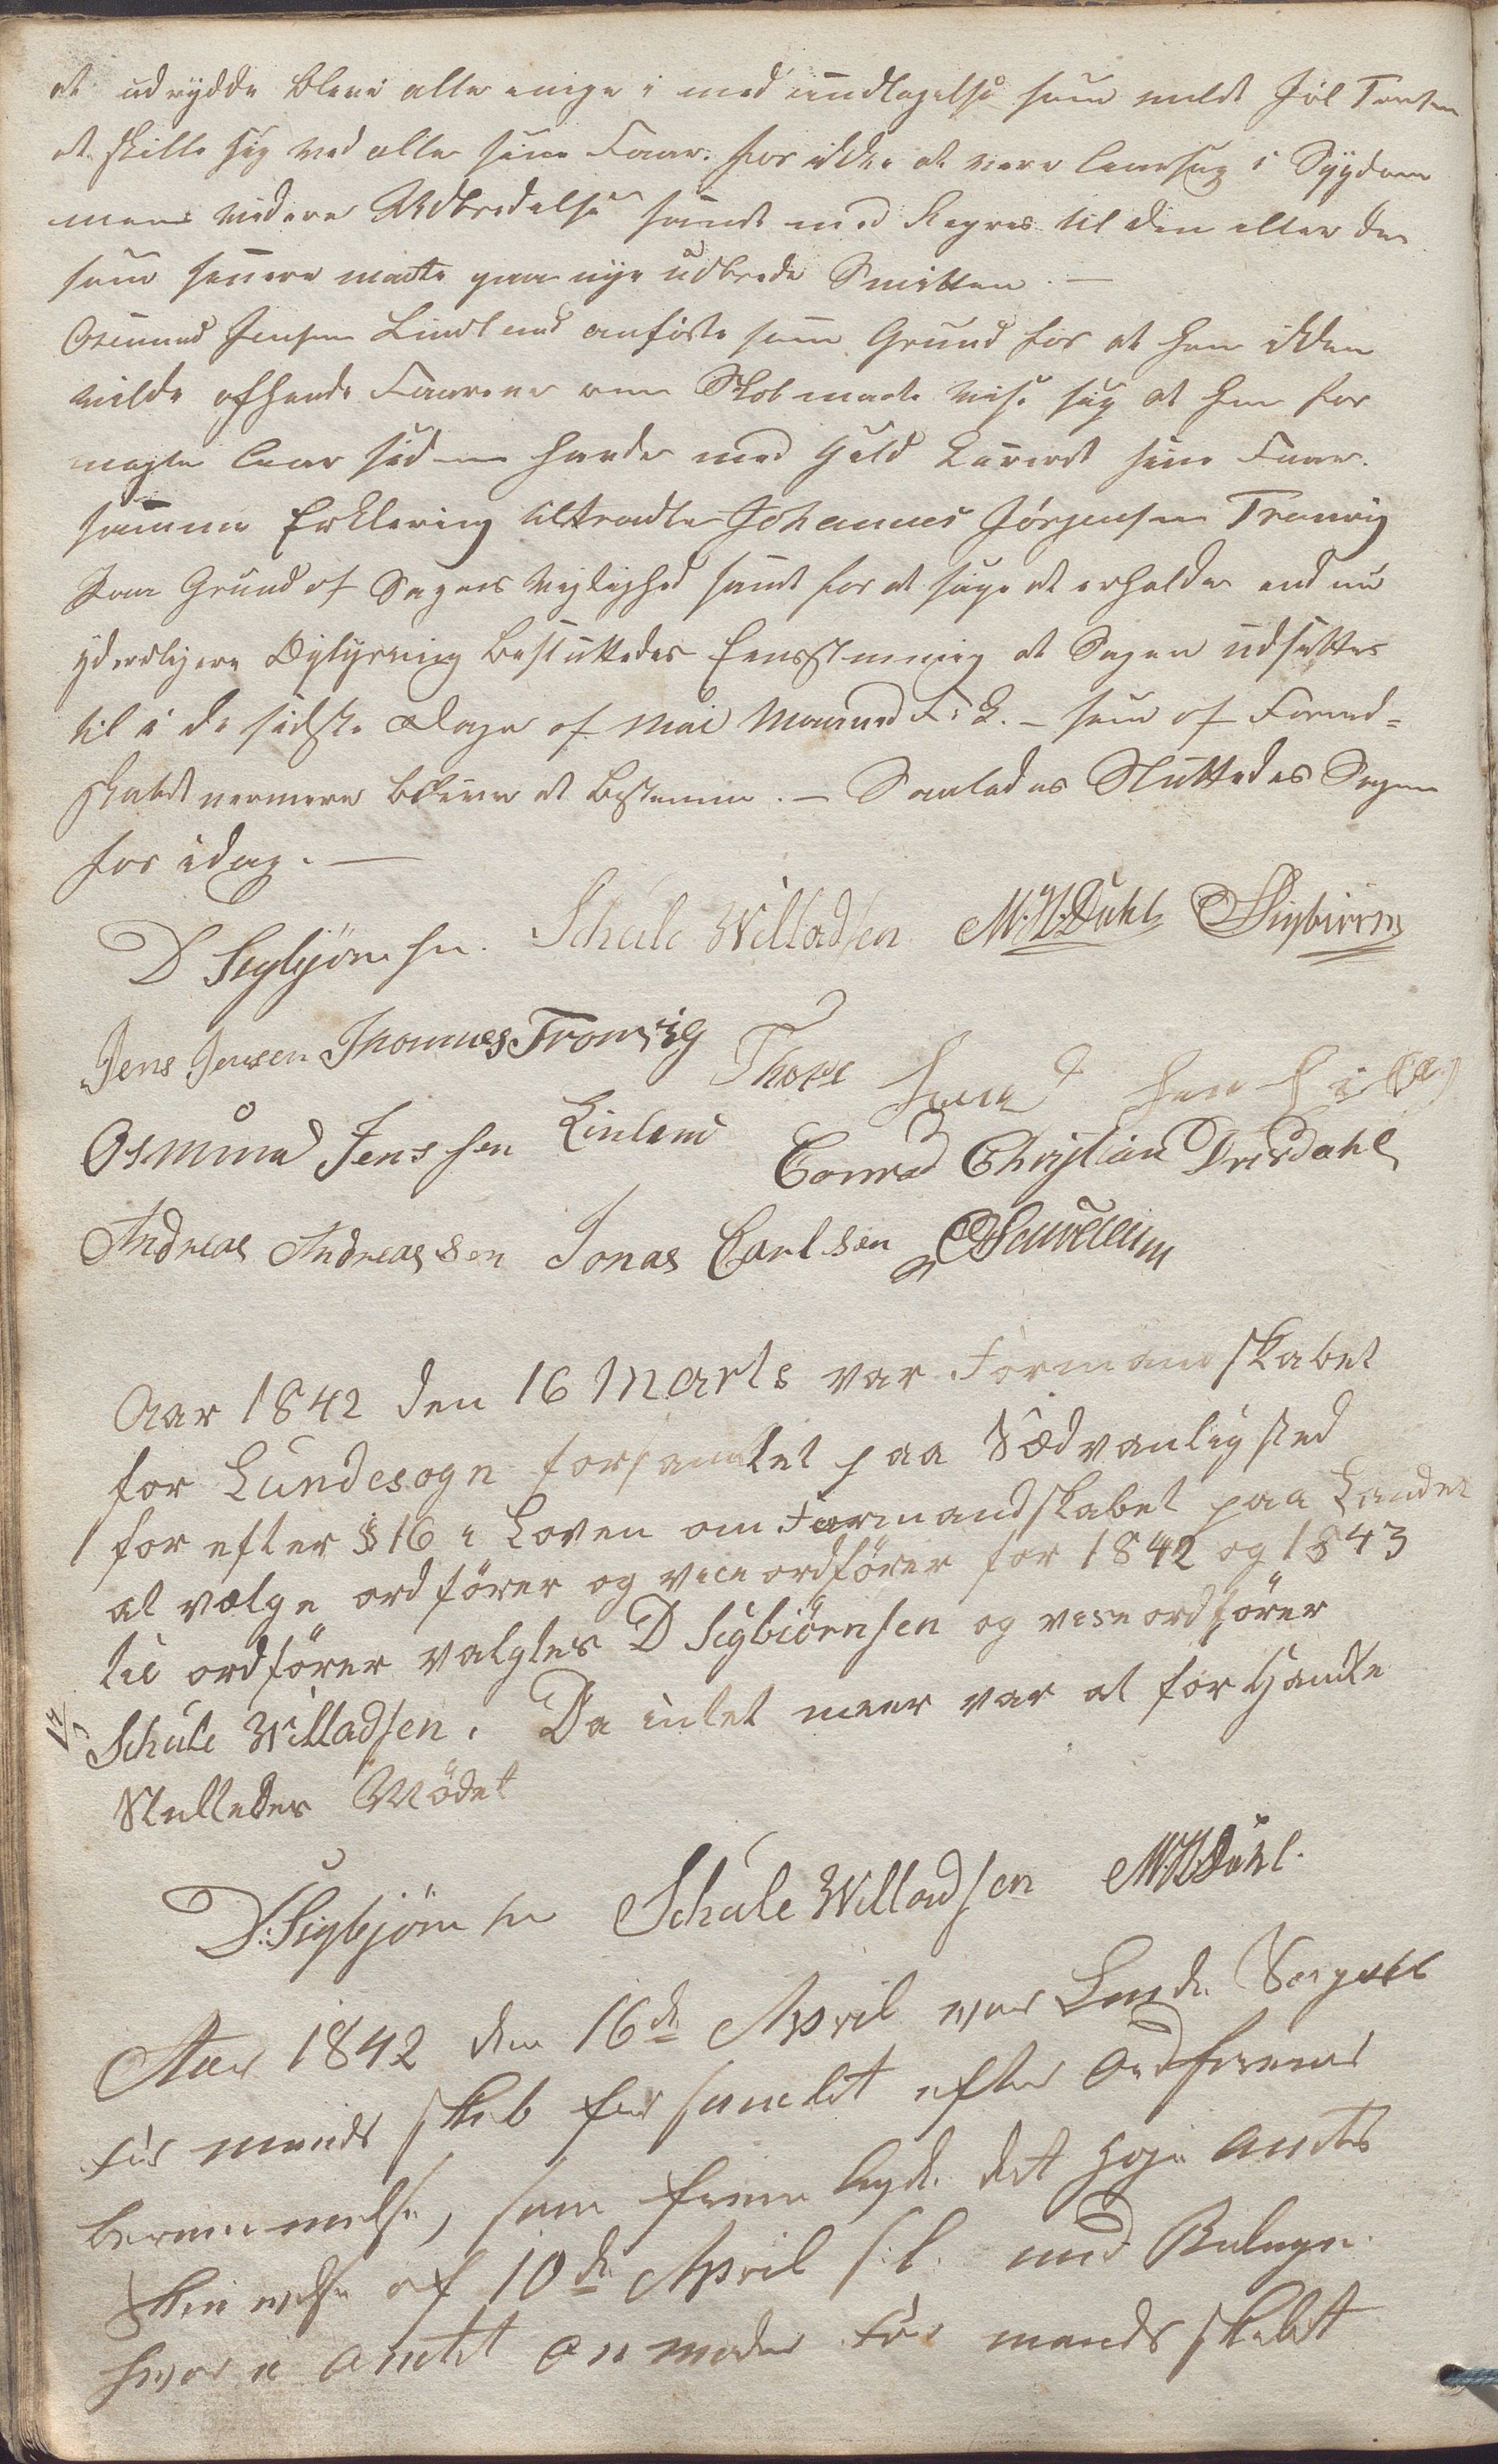 at udrydde bleve alle enige i med undtagelse som meldt Joel Tronsen
at skille sig ved alle sine Faar. for ikke at være Aarsag i Sygdom
mens videre Udbredelse samt med Regres til den eller dem
som senere maatte paa nye udbrede Smitten. —
Osmund Jensen Lindland anførte som Grund for at han ikke
vilde afhænde Faarene om Skab maatte vise sig at han for
nogle Aar siden havde med Held Cureret sine Faar.
samme Erklæring tiltraadte Johannes Jørgensen Tronvig
Paa Grund af Sagens Vigtighed samt for at søge at erholde endnu
yderligere Oplysning Besluttedes Eenstemmig at Sagen udsættes
til i de sidste Dage af Mai Maaned F. A. — som af Formand=
skabet nermere bliver at bestemme. — Saaledes Sluttedes Sagen
for idag. —
D Sigbjörnsen. Schule Willadsen M. H. Dahl
Jens Jensen Thomas Tronvig
Osmund Jenssen Linland Conrad Christian Drisdahl
Andreas Andreassen Jonas Carlsen
Aar 1842 den 16 Marts var Formandskabet
for Lundesogn forsamlet paa Sædvanligsted
for efter § 16 i Loven om Formandskabet paa Landet
at vælge ordförer og vice ordförer for 1842 og 1843
til ordförer valgtes D Sigbiörnsen og viseordförer
Schule Willadsen. Da intet meer var at forhandle
Sluttedes Mödet
D. Sigbjörnsen Schule Willadsen M. H. Dahl.
Aar 1842 den 16de April var Lunde Sogns
formandsskab forsamlet efter Ordførerens
berammelse, som fremlagde det Høje Amts
Skrivelse af 10de April s. l. med Bilage
hvori Amtet anmoder formandsskabet